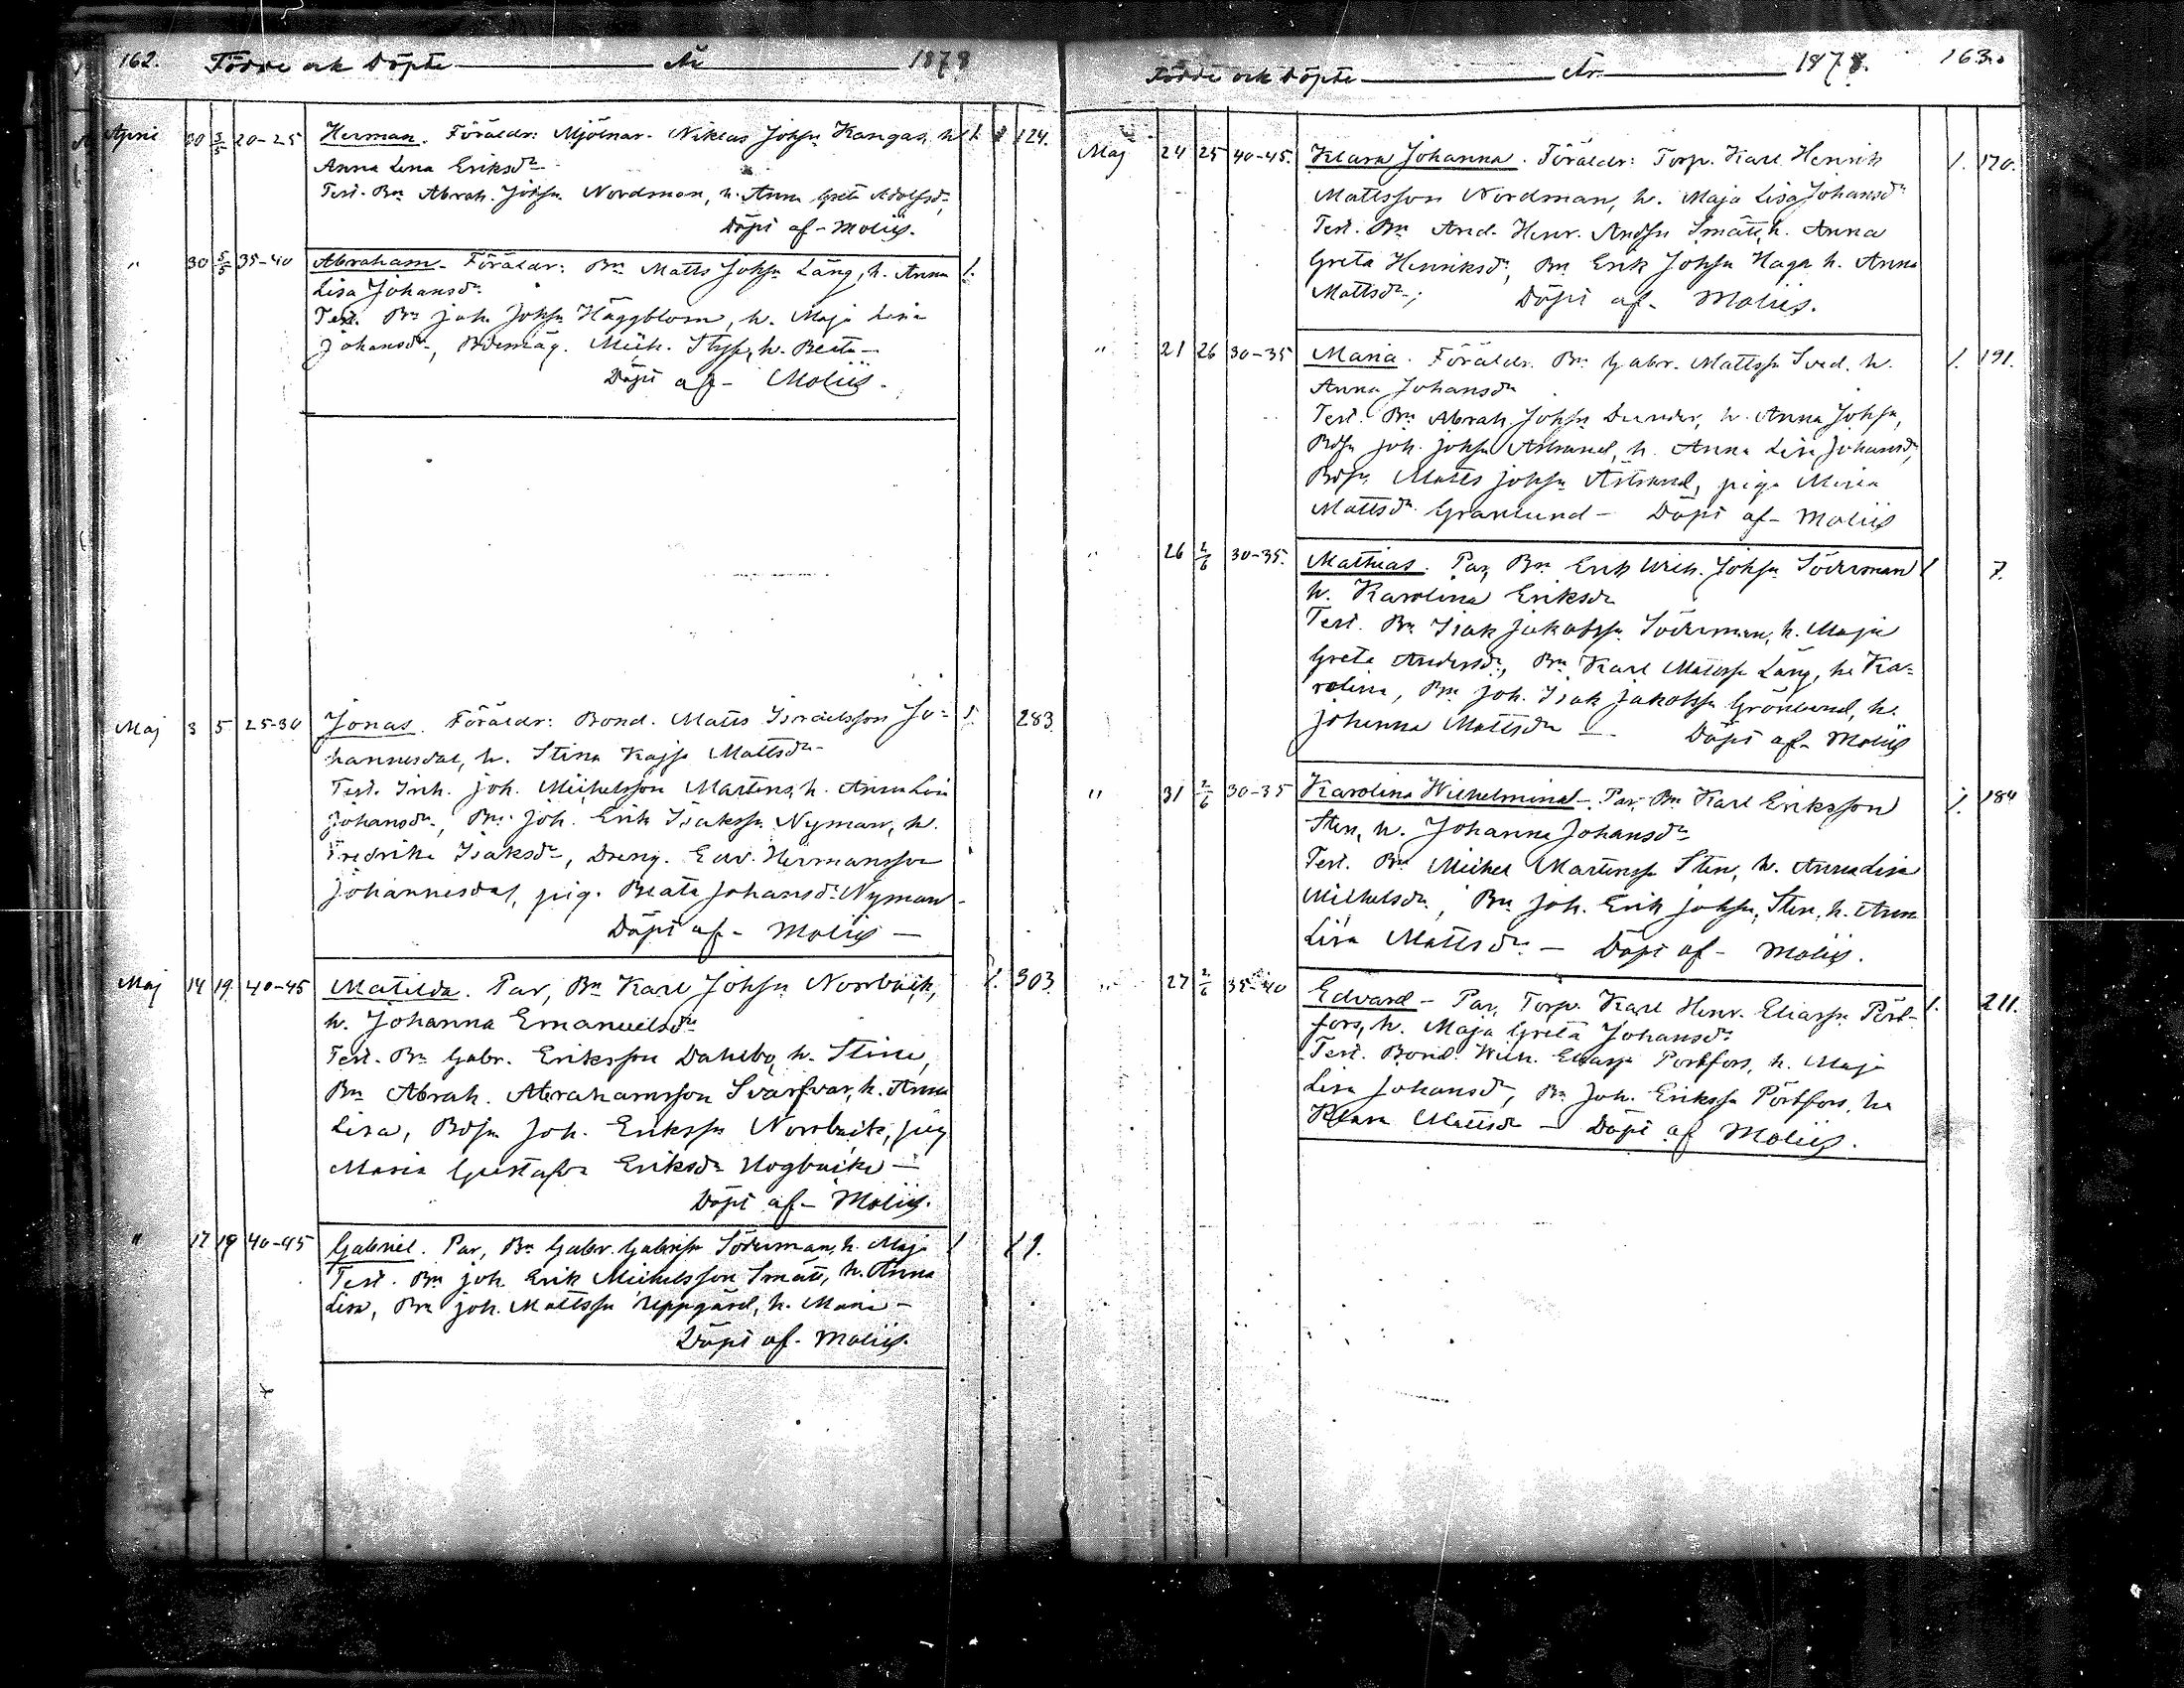 162. Födde och Döpte År 1878
April 30 5/5 20-25 Herman. Föräldr: Mjölnar. Niklas Johsn Kangas, h. 124.
Anna Lena Eriksdr
Test. Bn Abrah. Johsn Nordman, h. Anna Greta Adolfsdr,
Döpt af - Moliis.
" 30 5/5 35-40 Abraham - Föräldr: Bn Matts Johsn Lång, h. Anna
Lisa Johansdr
Test. Bn Joh. Johsn Häggblom, h. Maja Lisa
Johansdr, Mich. h. Beata -
Döpt af - Moliis.
Maj 3 5 25-30 Jonas. Föräldr: Bond. Matts Israelsson Jo- 283
hannesdal, h. Stina Kajsa Mattsdr
Test. Inh. Joh. Michelsson Martens, h. Anna Lisa
Johansdr, Bn Joh. Erik Isakssn Nyman, h.
Fredrika Isaksdr, Dreng. Edv. Hermansson
Johannesdal, pig. Beata Johansdr Nyman -
Döpt af - Moliis -
Maj 14 19 40-45 Matilda. Par, Bn Karl Johsn Norrbäck, 303
h. Johanna Emanuelsdr
Test. Bn Gabr. Eriksson Dahlbo, h. Stina,
Bn Abrah. Abrahamsson Svarfvar, h. Anna
Lisa, Bdsn Joh. Erikssn Norrbäck, pig
Maria Gustafva Eriksdr Hogbacka -
Döpt af - Moliis.
" 17 19 40-45 Gabriel. Par, Bn Gabr. Gabrssn Söderman, h. Maja
Test. Bn Joh. Erik Michelsson Smått, h. Anna
Lisa, Bn Joh. Mattssn Uppgård, h. Maria -
Döpt af - Moliis.
Födde och Döpte År 1878. 163.
Maj 24 25 40-45. Klara Johanna. Föräldr: Torp. Karl Henrik 170.
Mattsson Nordman, h. Maja Lisa Johansdr
Test. Bn And. Henr. Andsn Smått, h. Anna
Greta Henriksdr, Bn Erik Johsn Haga, h. Anna
Mattsdr; Döpt af - Moliis.
" 21 26 30-35 Maria. Föräldr. Bn Gabr. Mattssn Sved, h. 191.
Anna Johansdr
Test. Bn Abrah. Johsn Dunder, h. Anna Johsn,
Bdsn Joh. Johsn Åstrand, h. Anna Lisa Johansdr,
Bdsn Matts Johsn Åstrand, piga Maria
Mattsdr Granlund - Döpt af - Moliis
" 26 2/6 30-35. Mathias. Par, Bn Erik Wilh. Johsn Söderman 7.
h. Karolina Eriksdr
Test. Bn Isak Jakobssn Söderman, h. Maja
Greta Andersdr, Bn Karl Mattssn Lång, h. Ka-
rolina, Bn Joh. Isak Jakobssn Grönlund, h.
Johanna Mattsdr - Döpt af - Moliis
" 31 2/6 30-35 Karolina Wilhelmina - Par, Bn Karl Eriksson 184
Sten, h. Johanna Johansdr
Test. Bn Michel Martenssn Sten, h. Anna Lisa
Michelsdr, Bn Joh. Erik Johsn Sten, h. Anna
Lisa Mattsdr - Döpt af - Moliis.
" 27 2/6 35-40 Edvard - Par, Torp. Karl Henr. Eliassn Pörb- 211.
fors, h. Maja Greta Johansdr
Test. Bond. Wilh. Eliassn Pörbfors, h. Maja
Lisa Johansdr, Bn Joh. Erikssn Pörbfors, h.
Klara Mattsdr - Döpt af Moliis.